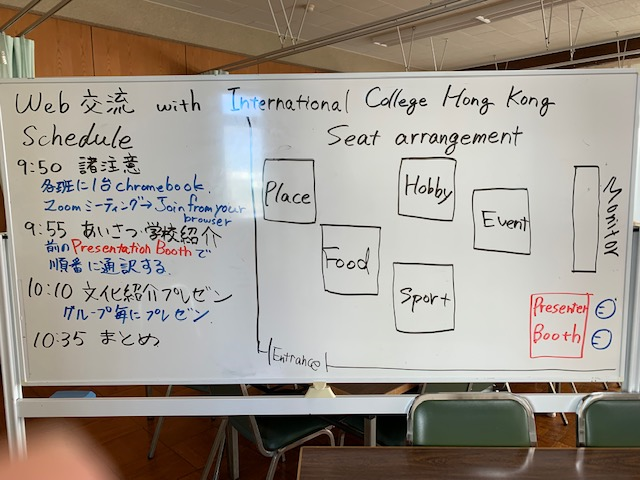 Web 交流 with International College Hong Kong
Schedule
9:50 諸注意
各班に1台chromebook.
Zoomミーティング→Join from your browser
9:55 あいさつ・学校紹介
前のPresentation Boothで
順番に通訳する.
10:10 文化紹介プレゼン
グループ毎にプレゼン.
10:35 まとめ
Seat arrangement
Place
Hobby
Event
Food
Sport
Monitor
Presenter
Booth
Entrance